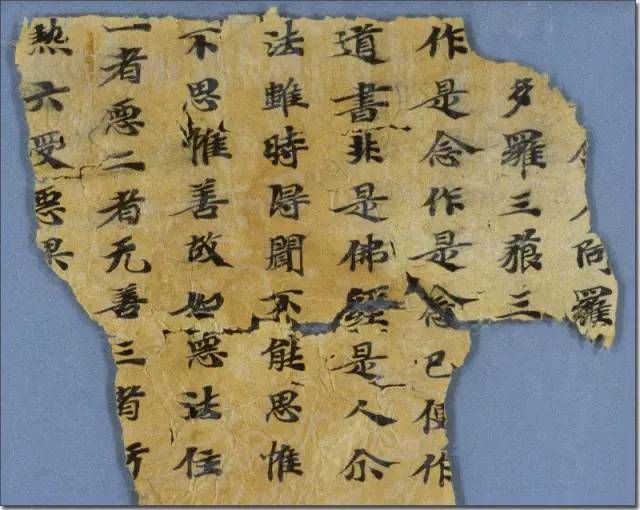 人阿羅
多羅三藐三
作是念作是念已便作
道書非是佛經是人尒
法雖時得聞不能思惟
不思惟善故如惡法住
一者惡二者无善三者
熱六受惡果